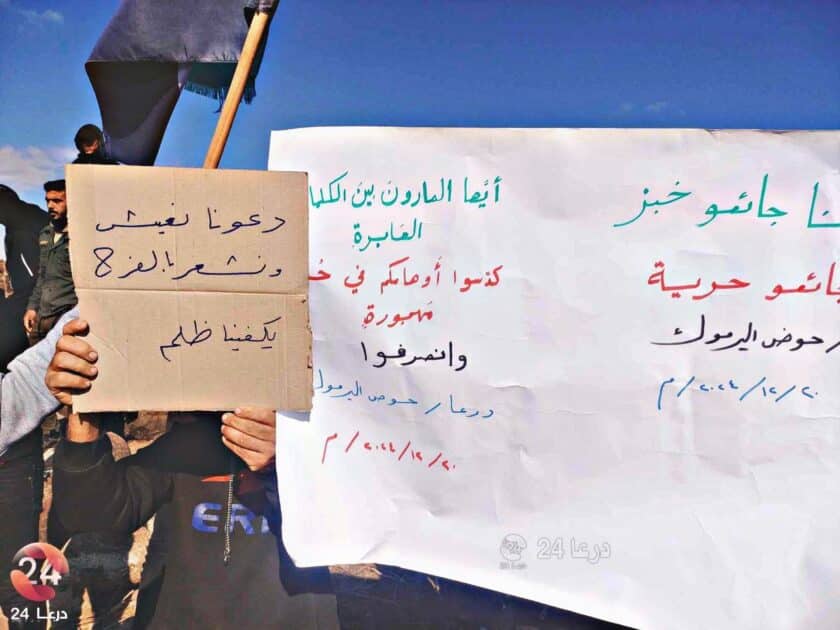 دعونا نعيش
ونشعر بالفرح
يكفينا ظلم
أيها المارون بين الكلما
العابرة
كدسوا أوهامكم في حُـ
مهجورة
وانصرفوا
درعا / حوض اليرموك
٢٠٢٤/١٢/٢٠ / م
جائعو خبز
جائعو حرية
حوض اليرموك
٢٠٢٤/١٢/٢٠ / م
ER
درعا 24
24
درعا 24